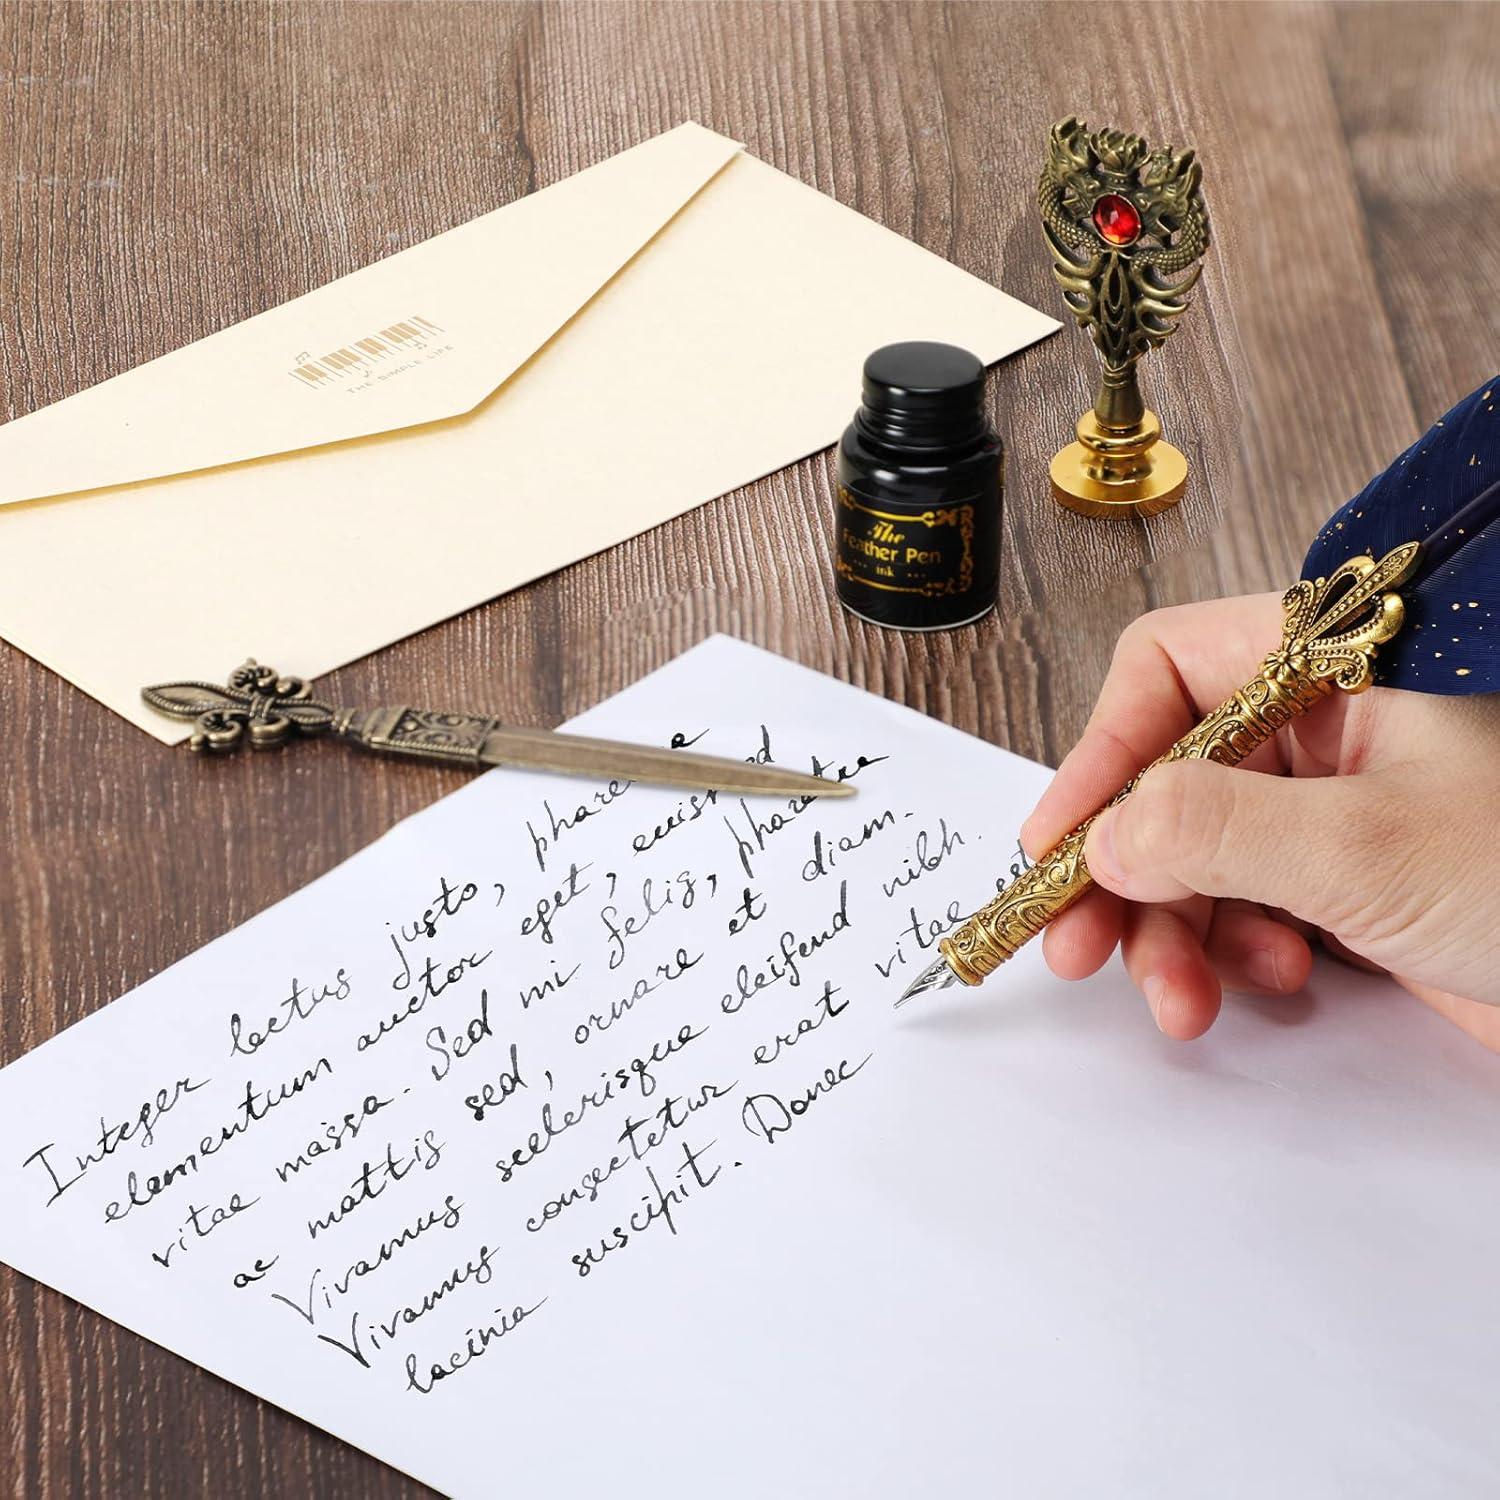 THE SIMPLE LIFE
The
Feather Pen
ink
Integer lectus justo, pharetra
elementum auctor eget, euismod
vitae massa. Sed mi felis, pharetra
ac mattis sed, ornare et diam.
Vivamus scelerisque eleifend nibh.
Vivamus consectetur erat vitae est
lacinia suscipit. Donec